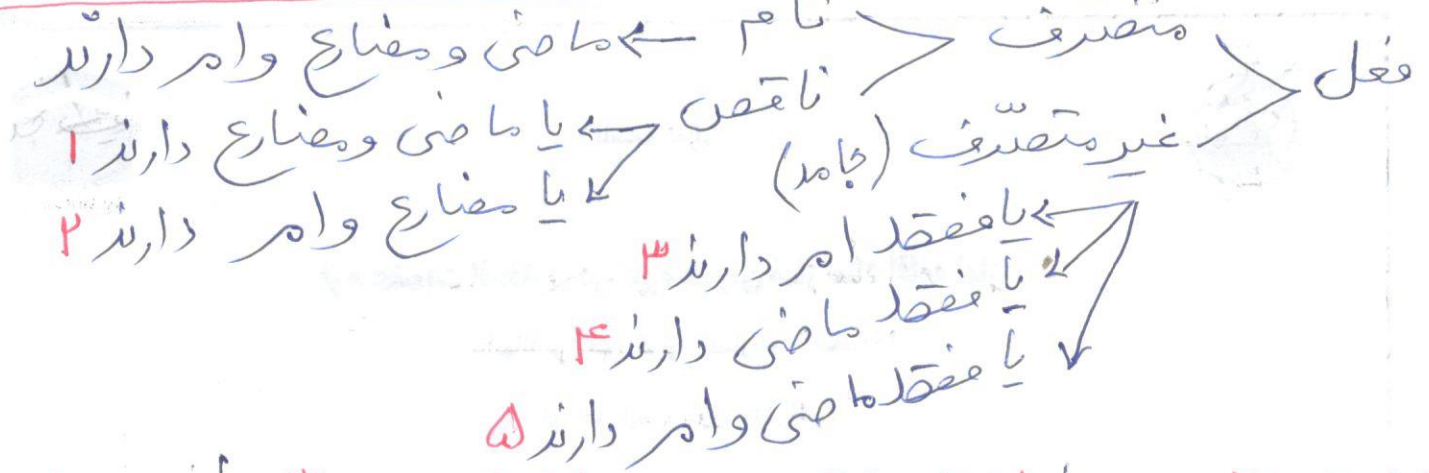 فعل
متصرف
تام ← ماضی و مضارع و امر دارند
ناقص
یا ماضی و مضارع دارند ۱
یا مضارع و امر دارند ۲
غیر متصرّف (جامد)
یا فقط امر دارند ۳
یا فقط ماضی دارند ۴
یا فقط ماضی و امر دارند ۵